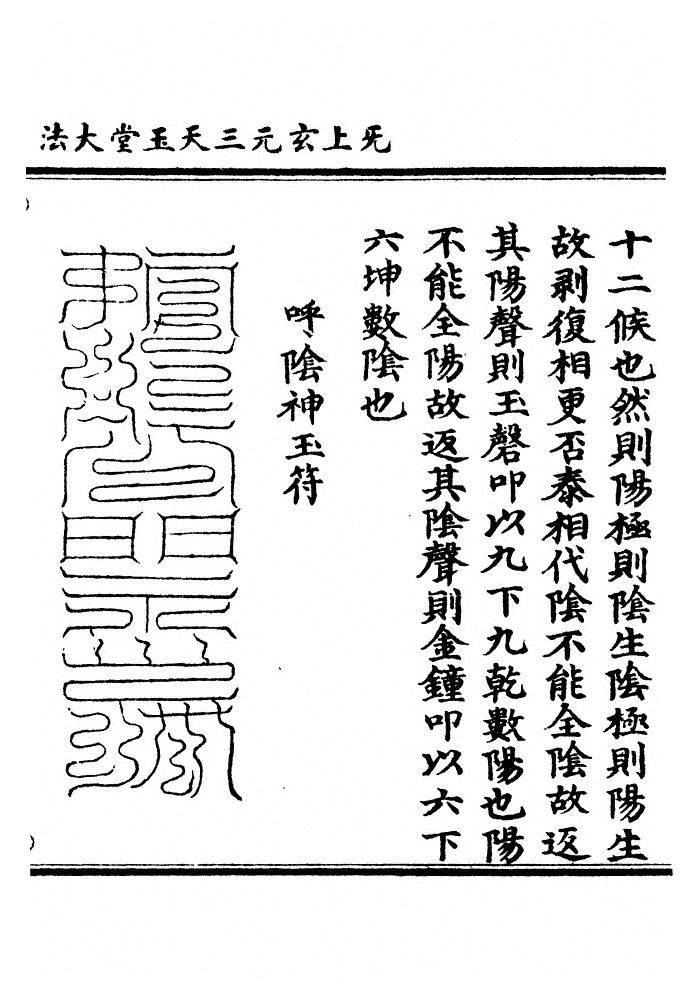 无上玄元三天玉堂大法
十二候也然則陽極則陰生陰極則陽生
故剥復相更否泰相代陰不能全陰故返
其陽聲則玉磬叩以九下九乾數陽也陽
不能全陽故返其陰聲則金鐘叩以六下
六坤數陰也
呼陰神玉符